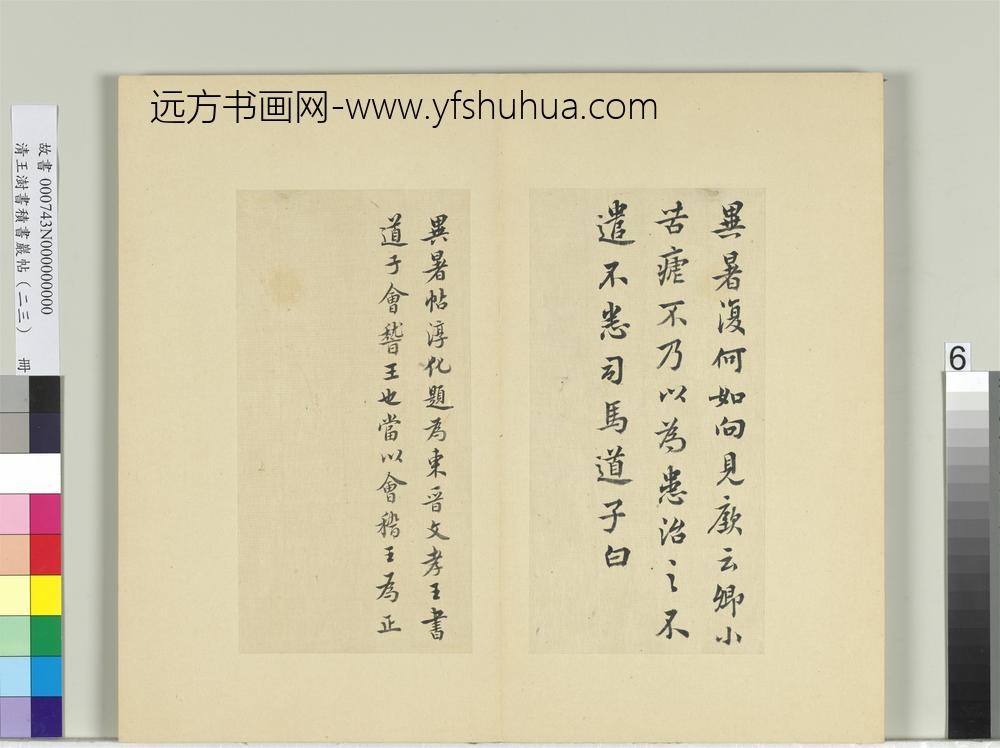 远方书画网-www.yfshuhua.com
異暑復何如向見廞云卿小
苦瘧不乃以為患治之不
遣不悉司馬道子白
異暑帖淳化題為東晉文孝王書
道子會稽王也當以會稽王為正
故書 000743N000000000
清王澍書積書巖帖（二三） 冊
6